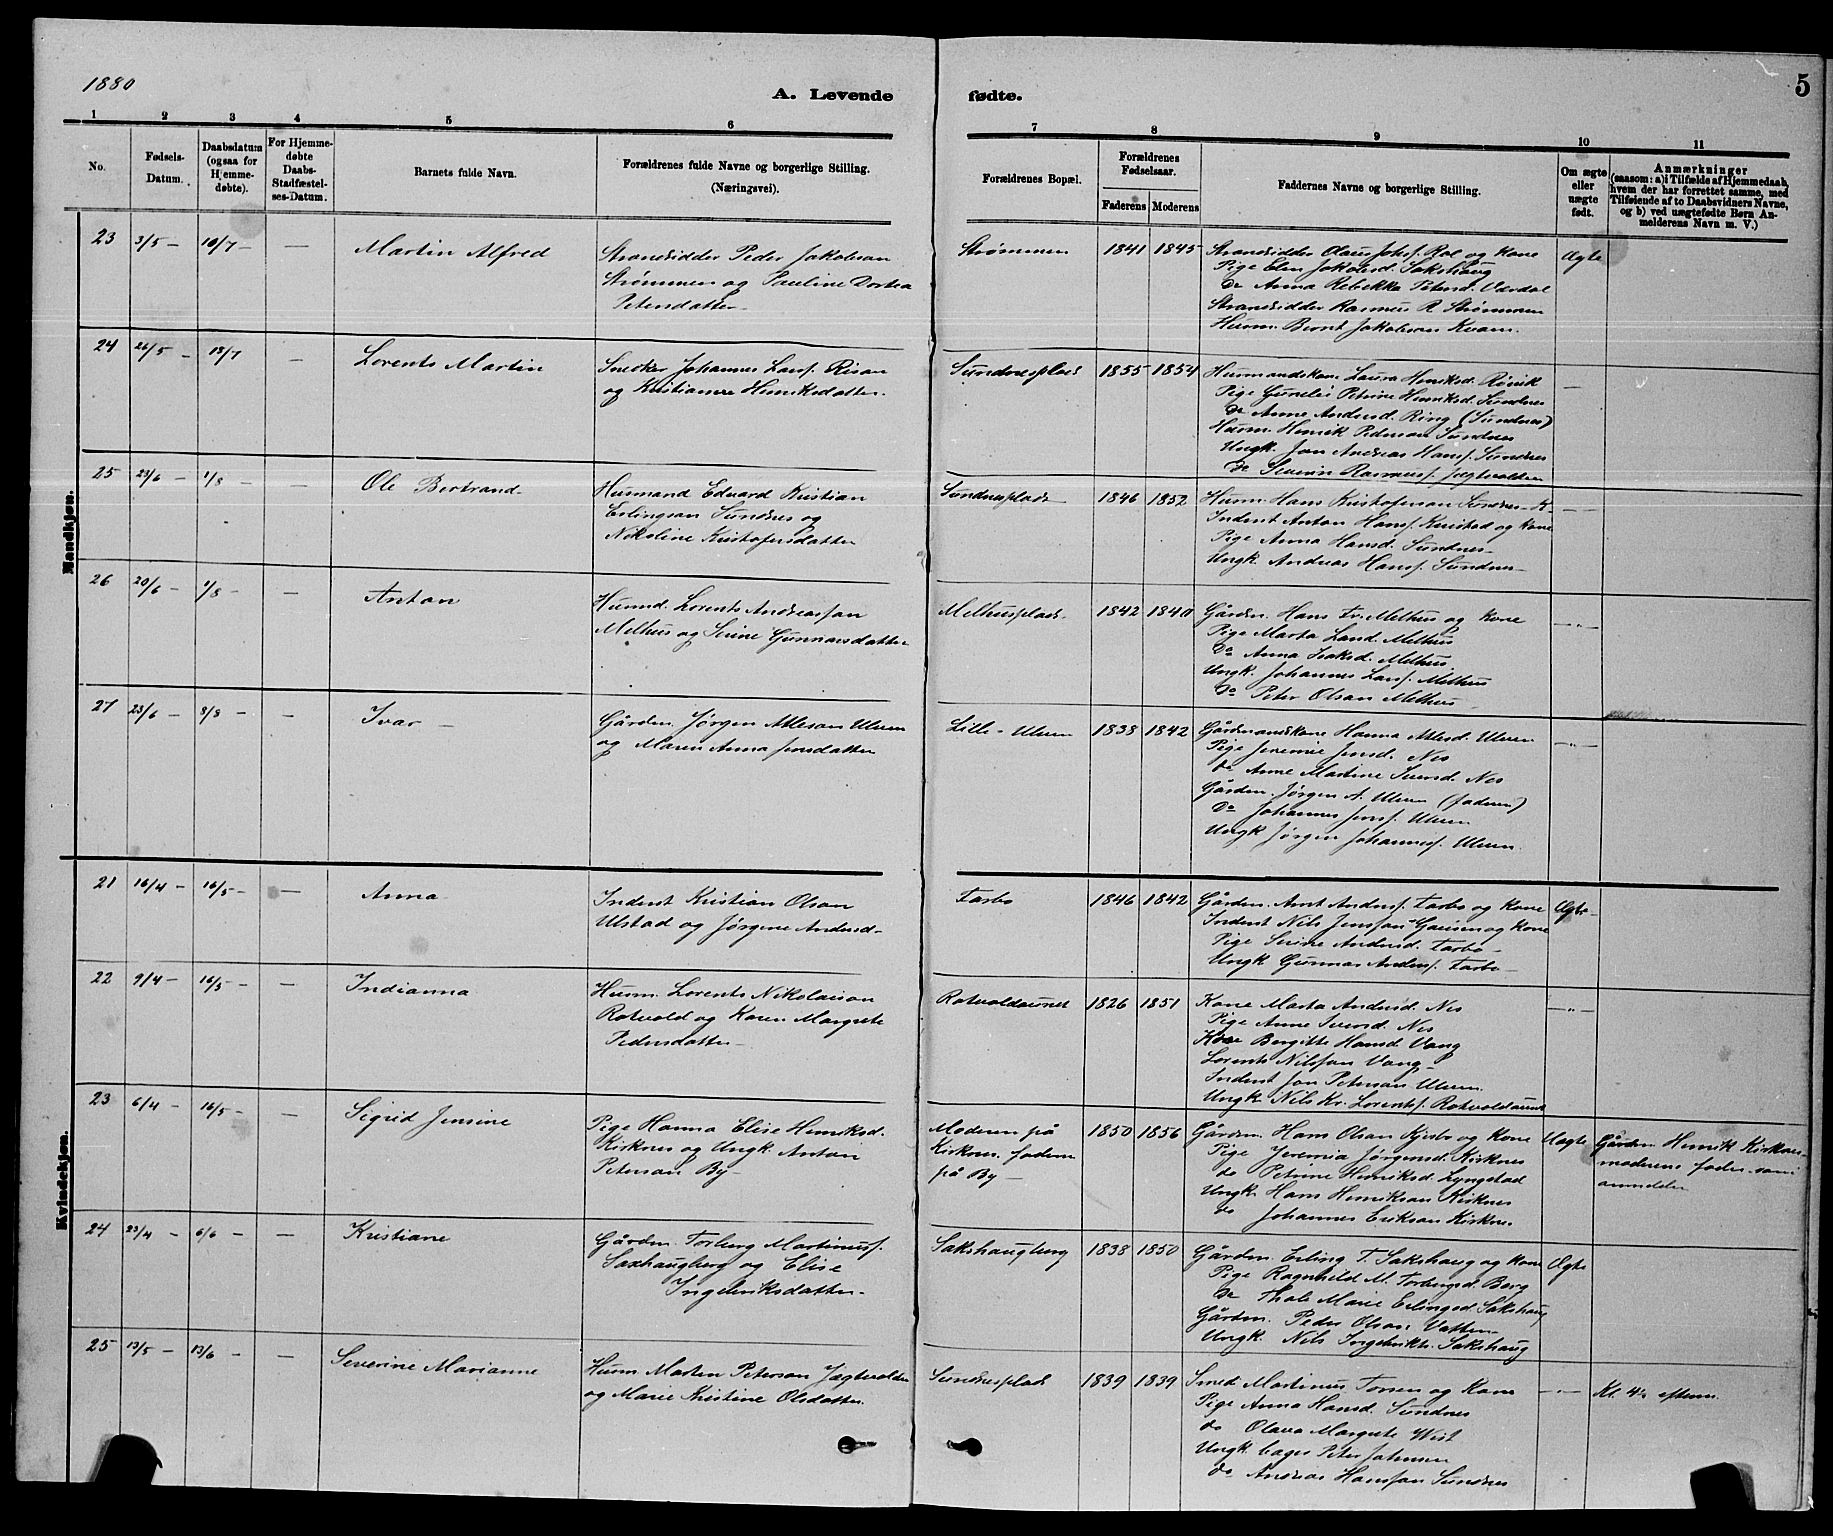 1880
A. Levende
fødte.
5
1 2 3 4 5 6 7 8 9 10 11
No.
Fødsels-Datum.
Daabsdatum (ogsaa for Hjemmedøbte).
For Hjemmedøbte Daabs-Stadfæstelses-Datum.
Barnets fulde Navn.
Forældrenes fulde Navne og borgerlige Stilling.
(Næringsvei).
Forældrenes Bopæl.
Forældrenes Fødselsaar.
Faderens Moderens
Faddernes Navne og borgerlige Stilling.
Om ægte eller uægte født.
Anmærkninger
(saasom: a) i Tilfælde af Hjemmedaab,
hvem der har forrettet samme, med
Tilføiende af to Daabsvidners Navne,
og b) ved uægtefødte Børn Anmelderens Navn m. V.)
Mandkjøn.
23 3/5 – 10/7 – — Martin Alfred
Strandsidder Peder Jakobson
Strømmen og Pauline Dortea
Petersdatter
Strømmen 1841 1845
Strandsidder Olaus Johs. Rol og Kone
Pige Elen Jakobsd. Sakshaug
Do Anna Rebekka Petersd. Vardal
Strandsidder Rasmus R Strømmen
Husm. Bernt Jakobson Kvam.
Ægte
24 26/5 – 18/7 – Lorents Martin
Snedker Johannes Larsf. Risan
og Kristianna Henriksdatter
Sundnesplads 1855 1854
Husmandskone Laura Henriksd. Rōvik
Pige Gurulie Petrine Henriksd. Sundnes
Do Anne Andersd. Ring (Sundnes)
Husm. Henrik Pederson Sundnes
Ungk. Jon Andreas Hansf. Sundnes
Do Severin Rasmusf. Jægtvolden
—
25 23/6 – 1/8 – — Ole Bertrand
Husmand Edvard Kristian
Erlingson Sundnes og
Nikoline Kristofersdatter
Sundnesplads 1846 1852
Husm. Hans Kristoferson Sundnes K
Inderst Anton Hansf. Knustad og Kone
Pige Anna Hansd. Sundnes
Ungk. Andreas Hansf. Sundnes
— –
26 20/6 – 1/8 – — Anton
Husmd. Lorents Andreasson
Melhus og Serine Gunnarsdatter
Melhusplads 1842 1840
Gårdm. Hans Tr. Melhus og Kone
Pige Marta Larsd. Melhus
Do Anna Isaksd. Melhus
Ungk. Johannes Larsf. Melhus
Do Peter Olsan Melhus
—"—
27 23/6 – 8/8 – – Ivar –
Gårdm. Jørgen Atleson Ulven
og Maren Anna Jonsdatter
Lille-Ulven 1838 1842
Gårdmandskone Hanna Atlesd. Ulven
Pige Jeremie Jensd. Nes
do Anne Martine Svensd. Nes
Gårdm. Jørgen A. Ulven (faderen)
Do Johannes Jensf. Ulven
Ungk Jørgen Johannesf. Ulven
—"—
Kvindekjøn.
21 16/4 – 16/5 – — Anna
Inderst Kristian Olsan
Ulstad og Jørgine Andersd.
Tarbo 1846 1842
Gårdm. Arnt Andersf. Tarbo og Kone
Inderst Nils Jensson Gausen og Kone
Pige Serine Andersd. Tarbo
Ungk Gunnar Andersf. Tarbo
Ægte
22 9/4 – 16/5 – – Indianna
Husm. Lorents Nikolaison
Rotvold og Karen Margrete
Pedersdatter
Rotvoldaunet 1826 1851
Kone Marta Andersd. Nes
Pige Anne Svensd. Nes
Kone Bergitte Hansd Vang
Lorents Nilsson Vang
Inderst Jon Peterson Ulven
Ungk Nils Kr. Lorentsf. Rotvoldaunet
—"—
23 6/4 – 16/5 – – Sigrid Jensine
Pige Hanna Elise Henriksd.
Kirknes og Ungk. Anton
Peterson By
Moderen på
Kirknes. faderen
på By
1850 1856
Gårdm. Hans Olsan Kjesbo og Kone
Pige Jeremia Jørgensd. Kirknes
do Petrine Henriksd. Lyngstad
Ungk. Hans Henriksan Kirknes
do Johannes Erikson Kirknes
Uægte
Gårdm Henrik Kirknes
moderens fader som
anmelder
24 23/4 – 6/6 – – Kristiane
Gårdm. Torberg Martinusf.
Saxhaugberg og Elise
Ingebriktsdatter
Sakshaugberg 1838 1850
Gårdm. Erling T. Sakshaug og Kone
Pige Ragnhild M. Torbergsd. Berg
Do Thale Marie Erlingsd. Sakshaug
Gårdm. Peder Olsan Vatten
Ungk. Nils Ingebriktsf. Sakshaug
Ægte
25 13/5 – 13/6 – — Severine Marianne
Husm Morten Peterson Jægtvolden
og Marie Kristine Olsdatter
Sundnesplads 1839 1839
Smed Martinus Torsen og Kone
Pige Anna Hansd. Sundnes
do Olava Margrete Wist
Ungk bager Peter Johnsen
do Andreas Hansson Sundnes
—"—
Kl. 4 efterm.